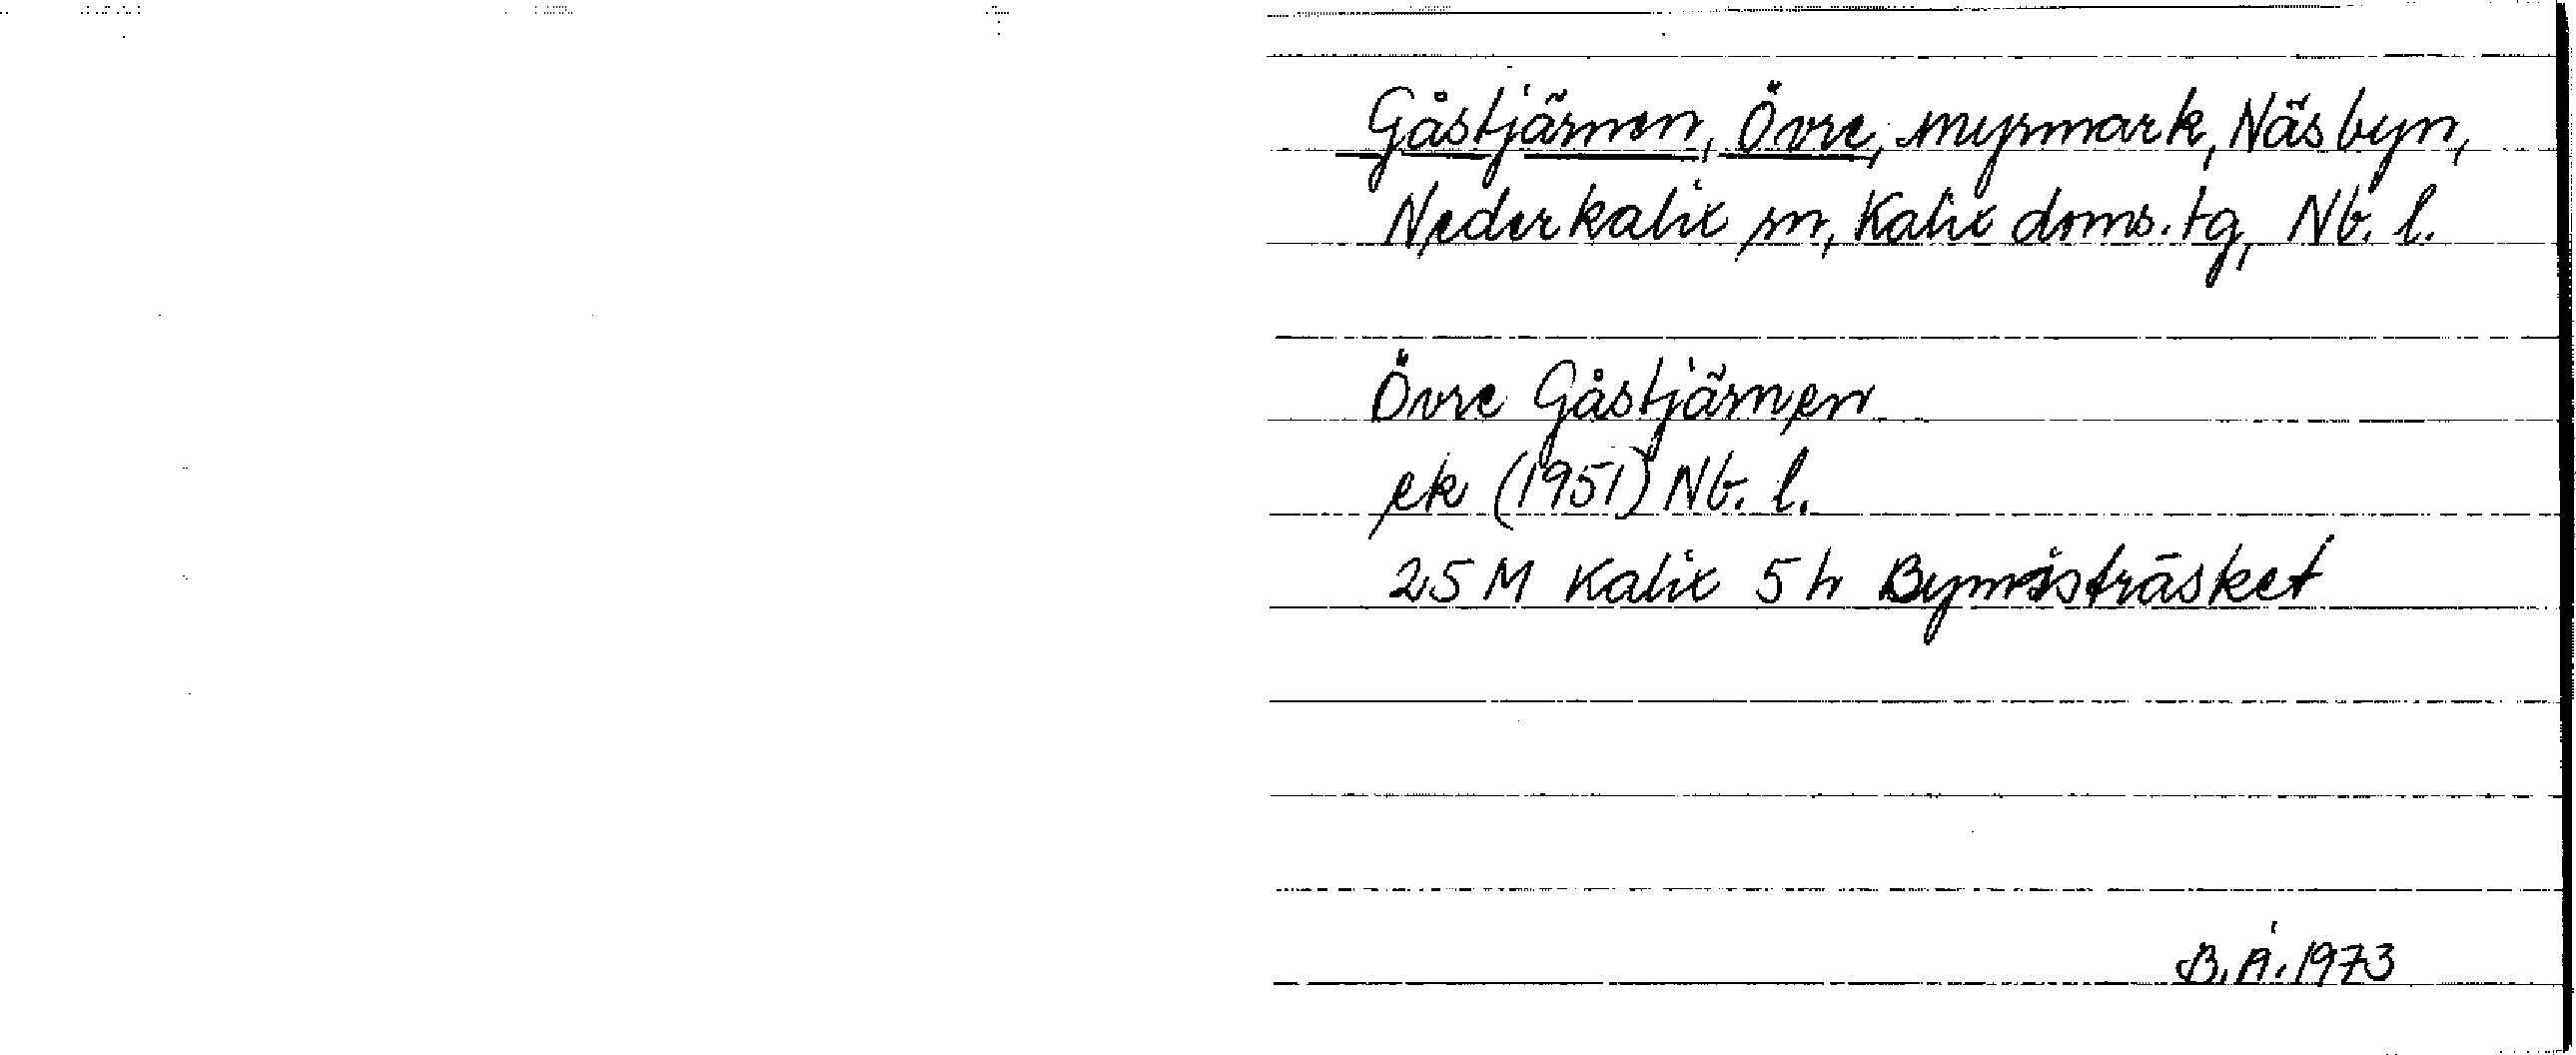 Gåstjärnen, Övre, myrmark, Näsbyn,
Nederkalix sn, Kalix doms. tg, Nb. l.
Övre Gåstjärnen
ek (1951) Nb. l.
25 M Kalix 5 h Bymåsträsket
B. Å. 1973